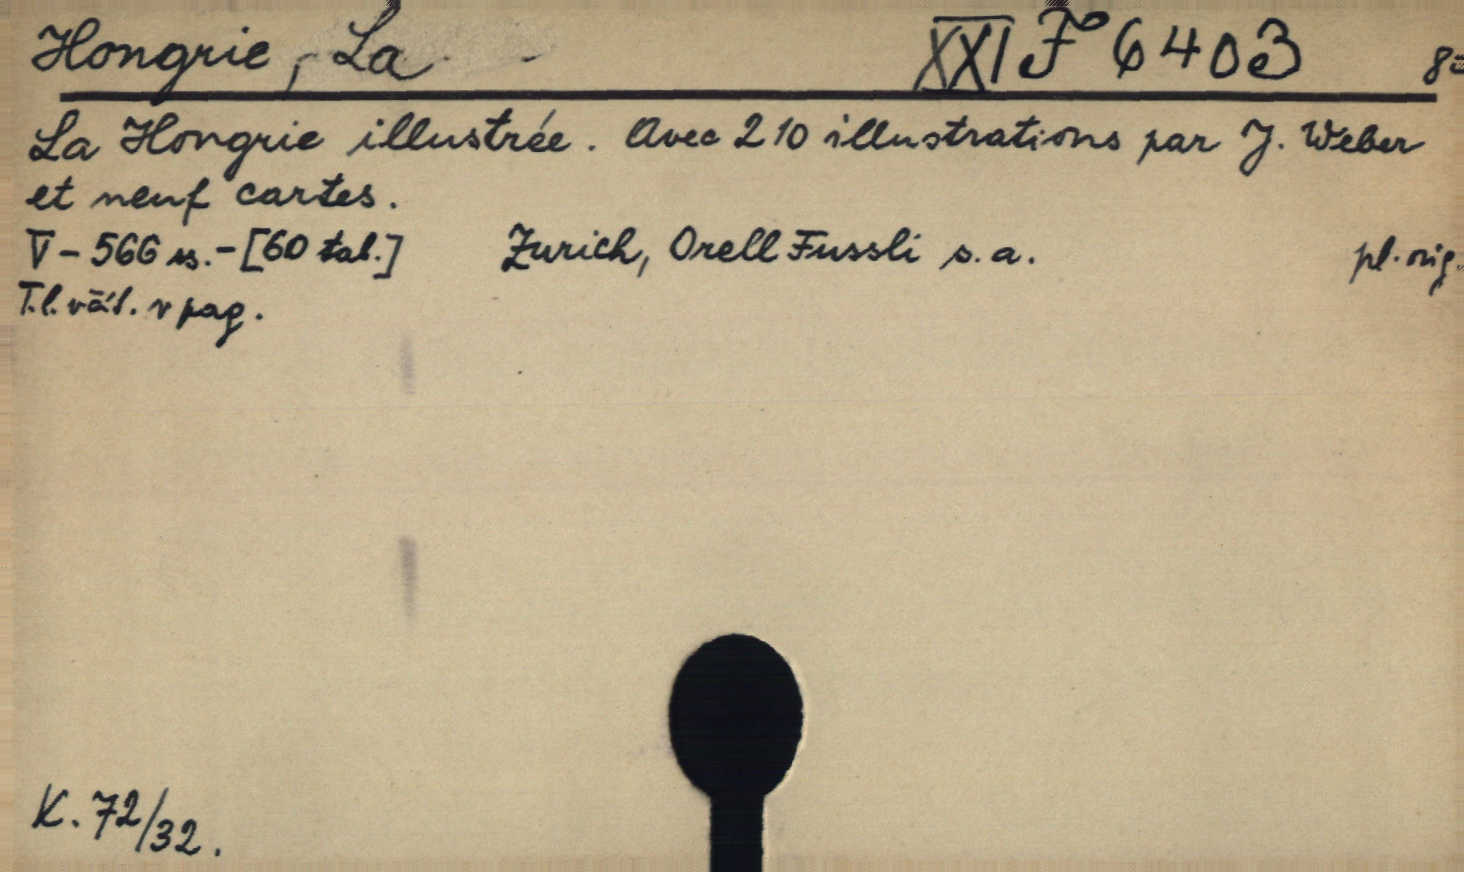 Hongrie, La XXI F 6403 8°
La Hongrie illustrée. Avec 210 illustrations par J. Weber
et neuf cartes.
V - 566 ss. - [60 tab.] Zurich, Orell Fussli s. a. pl. orig.
T. l. väč. v pag.
K. 72/32.